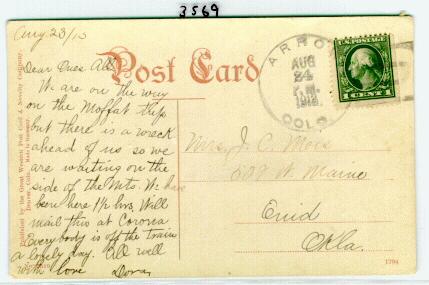 3569
Aug. 23/13
Post Card
Dear Ones All,
We are on the way
on the Moffat trip
but there is a wreck
ahead of us so we
are waiting on the
side of the Mts. We have
been here 1½ hrs. Will
mail this at Corona
Everybody is off the train
a lovely day. All well
with love Dora
ARRO
AUG
24
P.M.
COLO
U.S. POSTAGE
1 CENT 1
Mrs. J. C.
W. Maine
Enid
Okla.
Published by the Great Western Post Card & Novelty Company,
Denver, Colo.